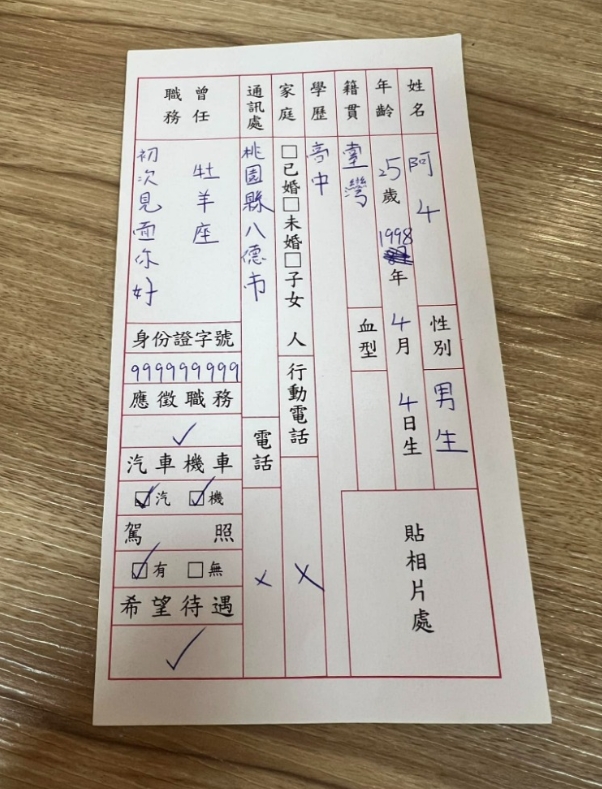 姓名 阿4
性別 男生
年齡 25歲 1998年 4月 4日生
籍貫 臺灣
血型
學歷 高中
家庭 □已婚□未婚□子女 人
行動電話 ×
通訊處 桃園縣八德市
電話 ×
曾任職務 牡羊座
初次見面你好
身份證字號
999999999
應徵職務
✓
汽車機車
☑汽 ☑機
駕照
☑有 □無
希望待遇
✓
貼相片處